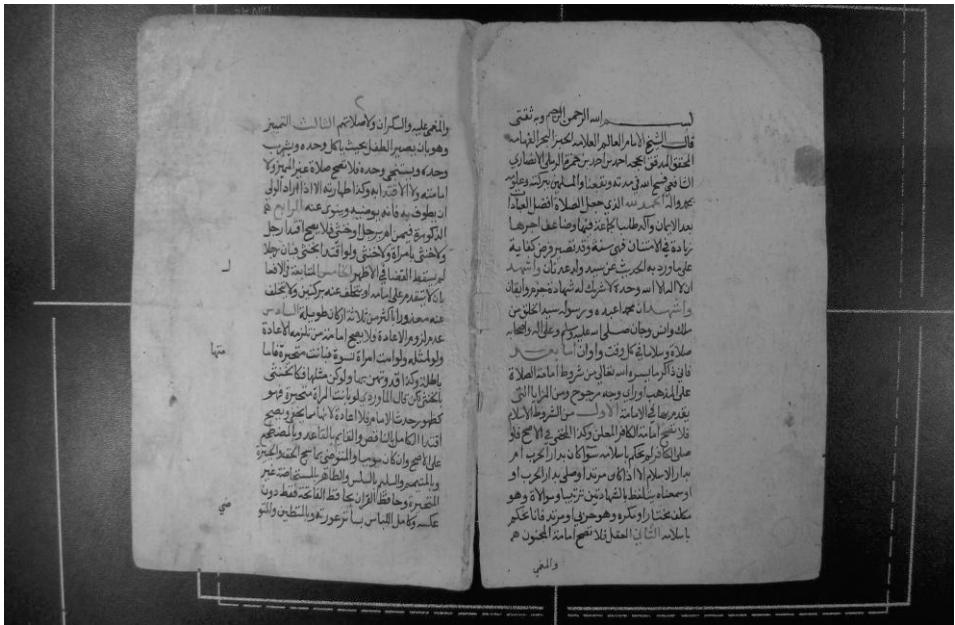 بسم الله الرحمن الرحيم وبه ثقتي
قال الشيخ الامام العالم العلامه الحبر البحر الفهامه
المحقق المدقق احمد بن احمد بن حمزة الرملي الانصاري
الشافعي فسح الله في مدته ونفعنا والمسلمين ببركته وعلومه
بمحمد واله الحمد لله الذي جعل الصلاة افضل العبادات
بعد الايمان وآكد طلب الجماعة فيها وضاعف اجرها
زيادة في الامتنان فهي سنة وقد تصير فرض كفاية
على ما ورد به الحديث عن سيد ولد عدنان واشهد
ان لا اله الا الله وحده لا شريك له شهادة جزم وايقان
واشهد ان محمدا عبده ورسوله سيد الخلق من
ملك وانس وجان صلى الله عليه وسلم وعلى اله واصحابه
صلاة وسلاما في كل وقت واوان اما بعد
فاني ذاكر ما يسره الله تعالى من شروط امامة الصلاة
على المذهب او راي وجه مرجوح ومن المزايا التي
يقدم بها في الامامة الاول من الشروط الاسلام
فلا تصح امامة الكافر المعلن وكذا المخفي في الاصح فلو
صلى الكافر لم يحكم باسلامه سوا كان بدار الحرب ام
بدار الاسلام الا اذا كان مرتدا وصلى بدار الحرب او
او سمعناه يتلفظ بالشهادتين ترتيبا وموالاة وهو
مكلف مختار او مكره وهو حربي او مرتد فانا نحكم
باسلامه الثاني العقل فلا تصح امامة المجنون
والمغمى
والمغمى عليه والسكران ولا صلاتهم الثالث التمييز
وهو بان يصير الطفل بحيث ياكل وحده ويشرب
وحده ويستنجي وحده فلا تصح صلاة غير المميز ولا
امامته ولا الاقتدا به وكذا طهارته الا اذا اراد الولي
ان يطوف به فانه يوضيه وينوي عنه الرابع
الذكورة فيمن ام برجل او خنثى فلا يصح اقتدا رجل
ولا خنثى بامراة ولا خنثى ولو اقتدا بخنثى فبان رجلا
لم يسقط القضا في الاظهر الخامس المتابعة في الافعا
ل
بان لا يتقدم على امامه او يتخلف عنه بركنين ولا يتخلف
عنه معذورا باكثر من ثلاثة اركان طويلة السادس
عدم لزوم الاعادة فلا يصح امامة من تلزمه الاعادة
ولو لمثله ولو امت امراة نسوة فبانت متحيرة فاما
متها
باطلة وكذا قدوتهن بها ولو كن مثلها فكالخنثى
بالخنثى لكن قال الماوردي لو بانت المراة متحيرة فهو
كظهور حدث الامام فلا اعادة لانها مما يخفى ويصح
اقتدا الكامل بالناقص والقايم بالقاعد وبالمضطجع
على الاصح وان كان موميا والمتوضي بماسح الخف والجبيرة
وبالمتيمم والسليم بالسلس والطاهر بالمستحاضة غير
المتحيرة وحافظ القران بحافظ الفاتحة فقط دون
عكسه وكامل اللباس بساتر عورته وبالمتطين والمتو
ضي